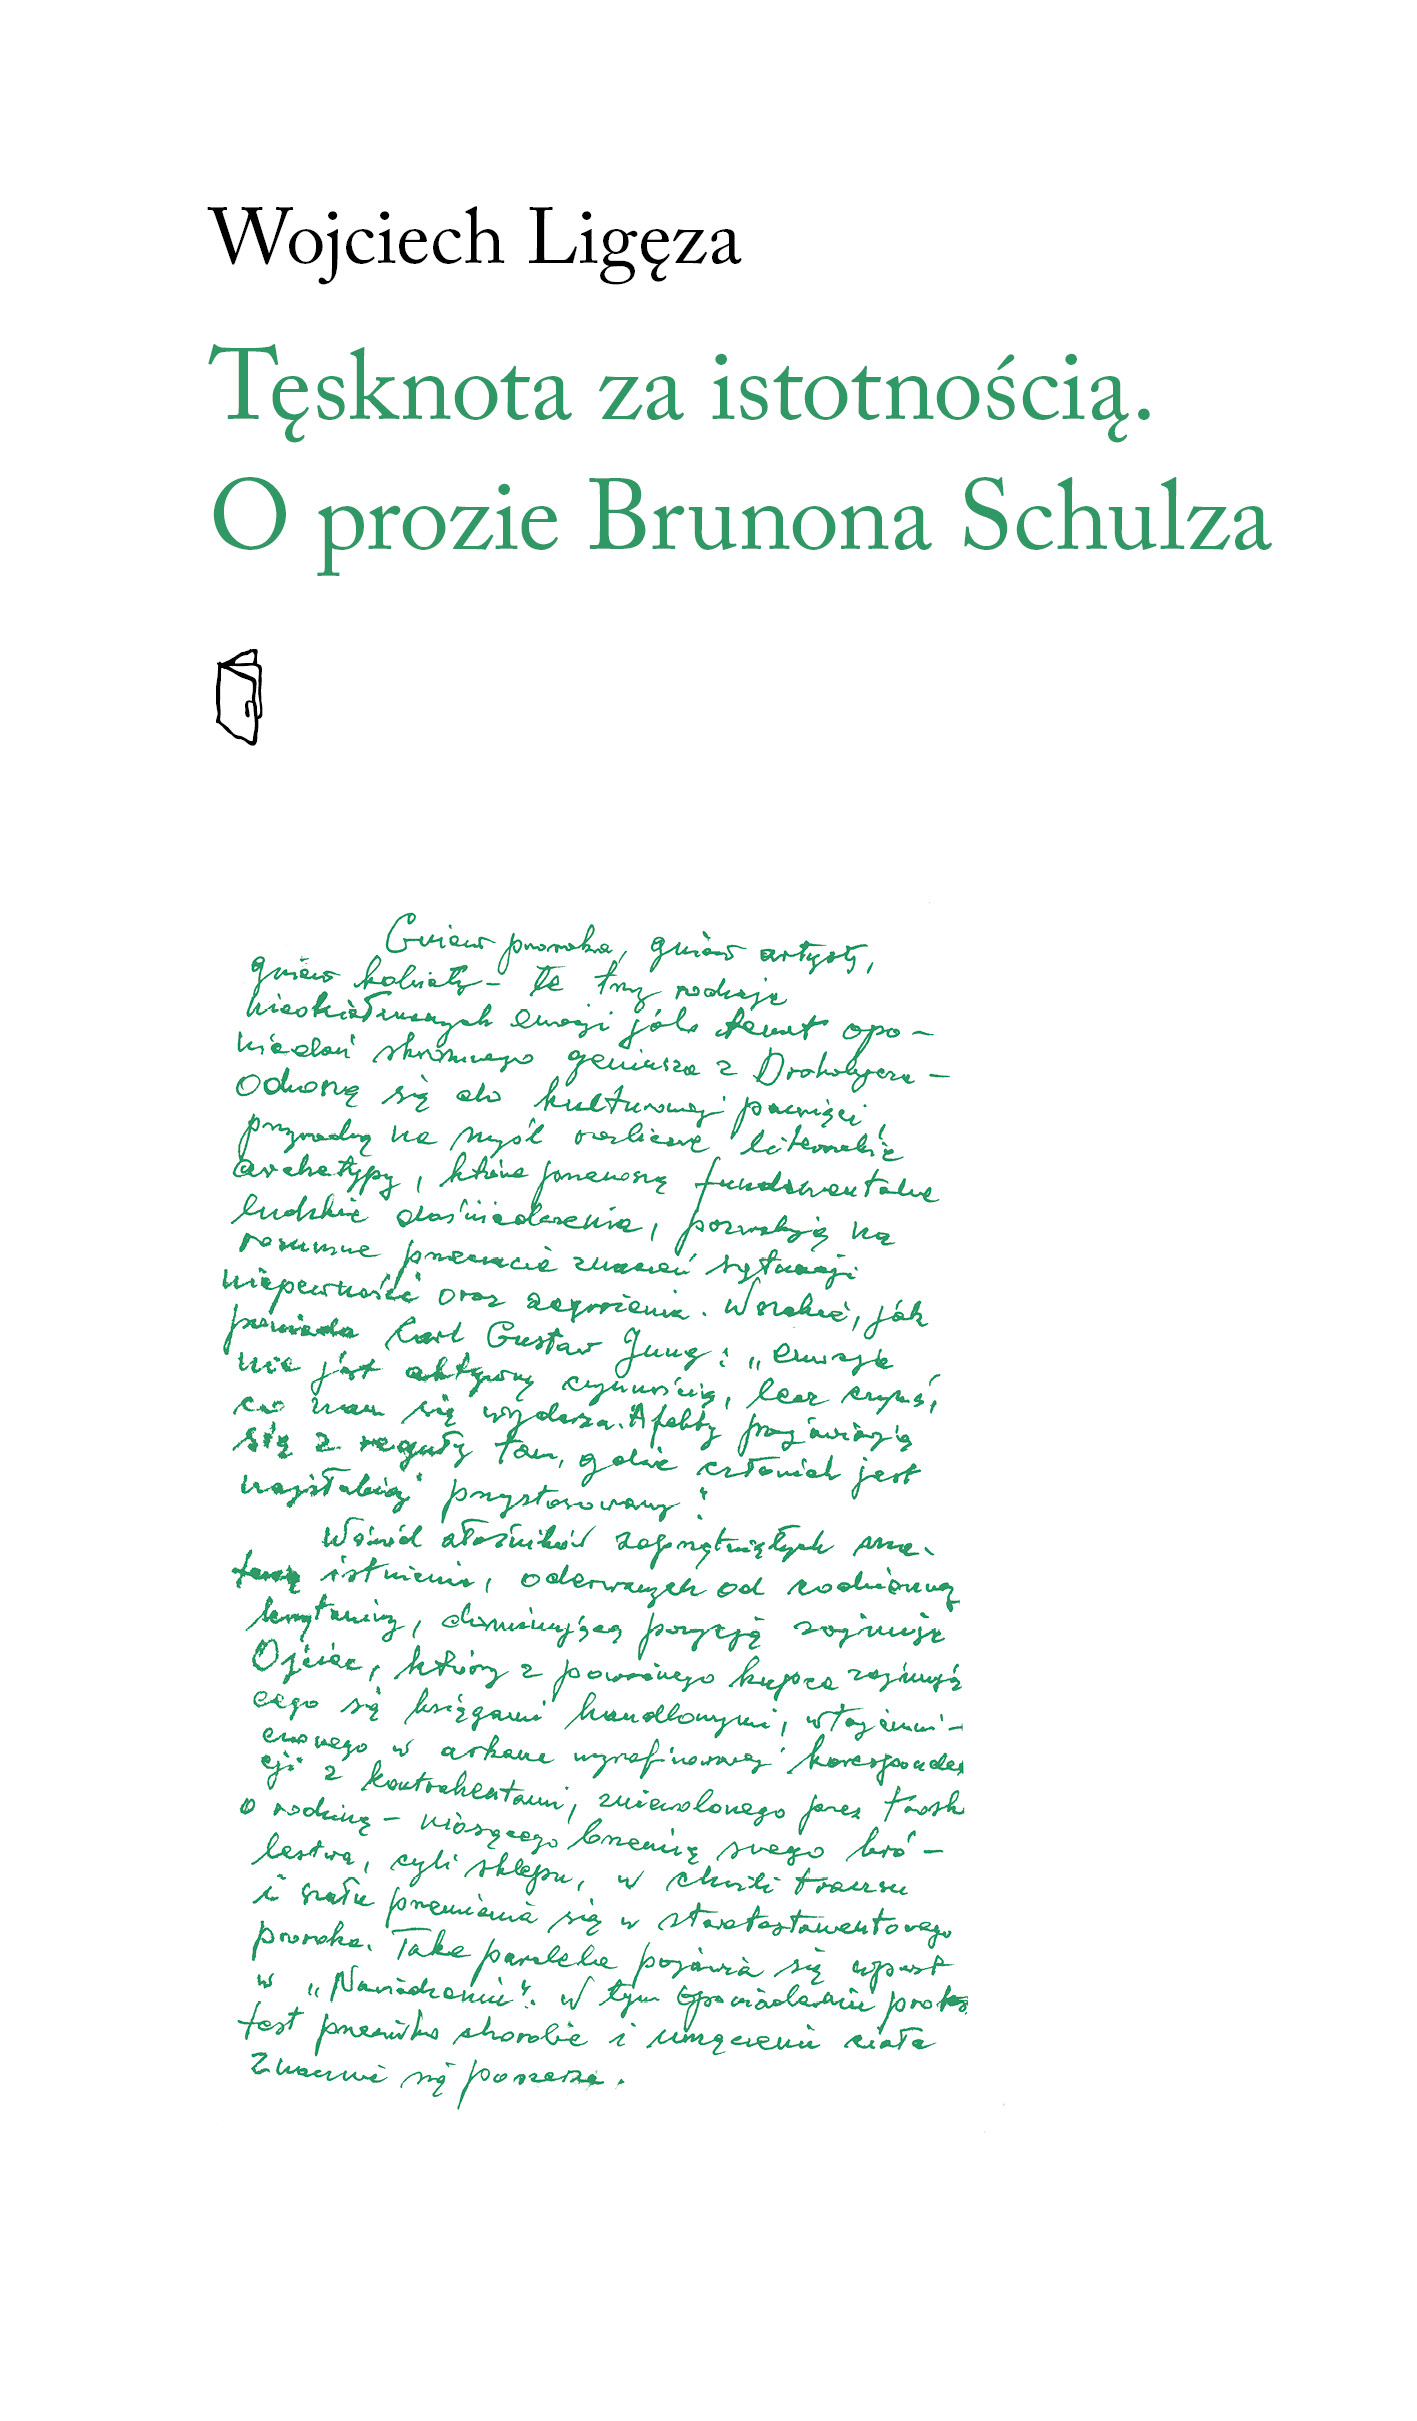 Wojciech Ligęza
Tęsknota za istotnością.
O prozie Brunona Schulza
Gniew proroka, gniew artysty,
gniew kobiety – te trzy rodzaje
nieokiełznanych emocji jako temat opo-
wiadań skromnego geniusza z Drohobycza –
odnoszą się do kulturowej pamięci,
przywodzą na myśl rozliczne literackie
archetypy, które przenoszą fundamentalne
ludzkie doświadczenia, pozwalają na
rozumne przeczucie znaczeń sytuacji
niepewności oraz zagrożenia. Wszakże, jak
powiada Carl Gustav Jung: „emocja
nie jest aktywną czynnością, lecz czymś,
co nam się wydarza. Afekty pojawiają
się z reguły tam, gdzie człowiek jest
najsłabiej przystosowany".
Wśród złośników zapamiętałych
istnienia, oderwanych od codziennej
krzątaniny, dominującą pozycję zajmuje
Ojciec, który z poważnego kupca zajmują
cego się księgami handlowymi, wtajemni-
czonego w arkana wyrafinowanej koresponden
cji z kontrahentami, zniewolonego przez trosk
o rodzinę – niosącego brzemię swego kró-
lestwa, czyli sklepu, w chwili transu
i szału przemienia się w starotestamentowego
proroka. Taka paralela pojawia się wprost
w „Nawiedzeniu". W tym opowiadaniu pro
test przeciwko chorobie i umęczeniu ciała
znacznie się poszerza.